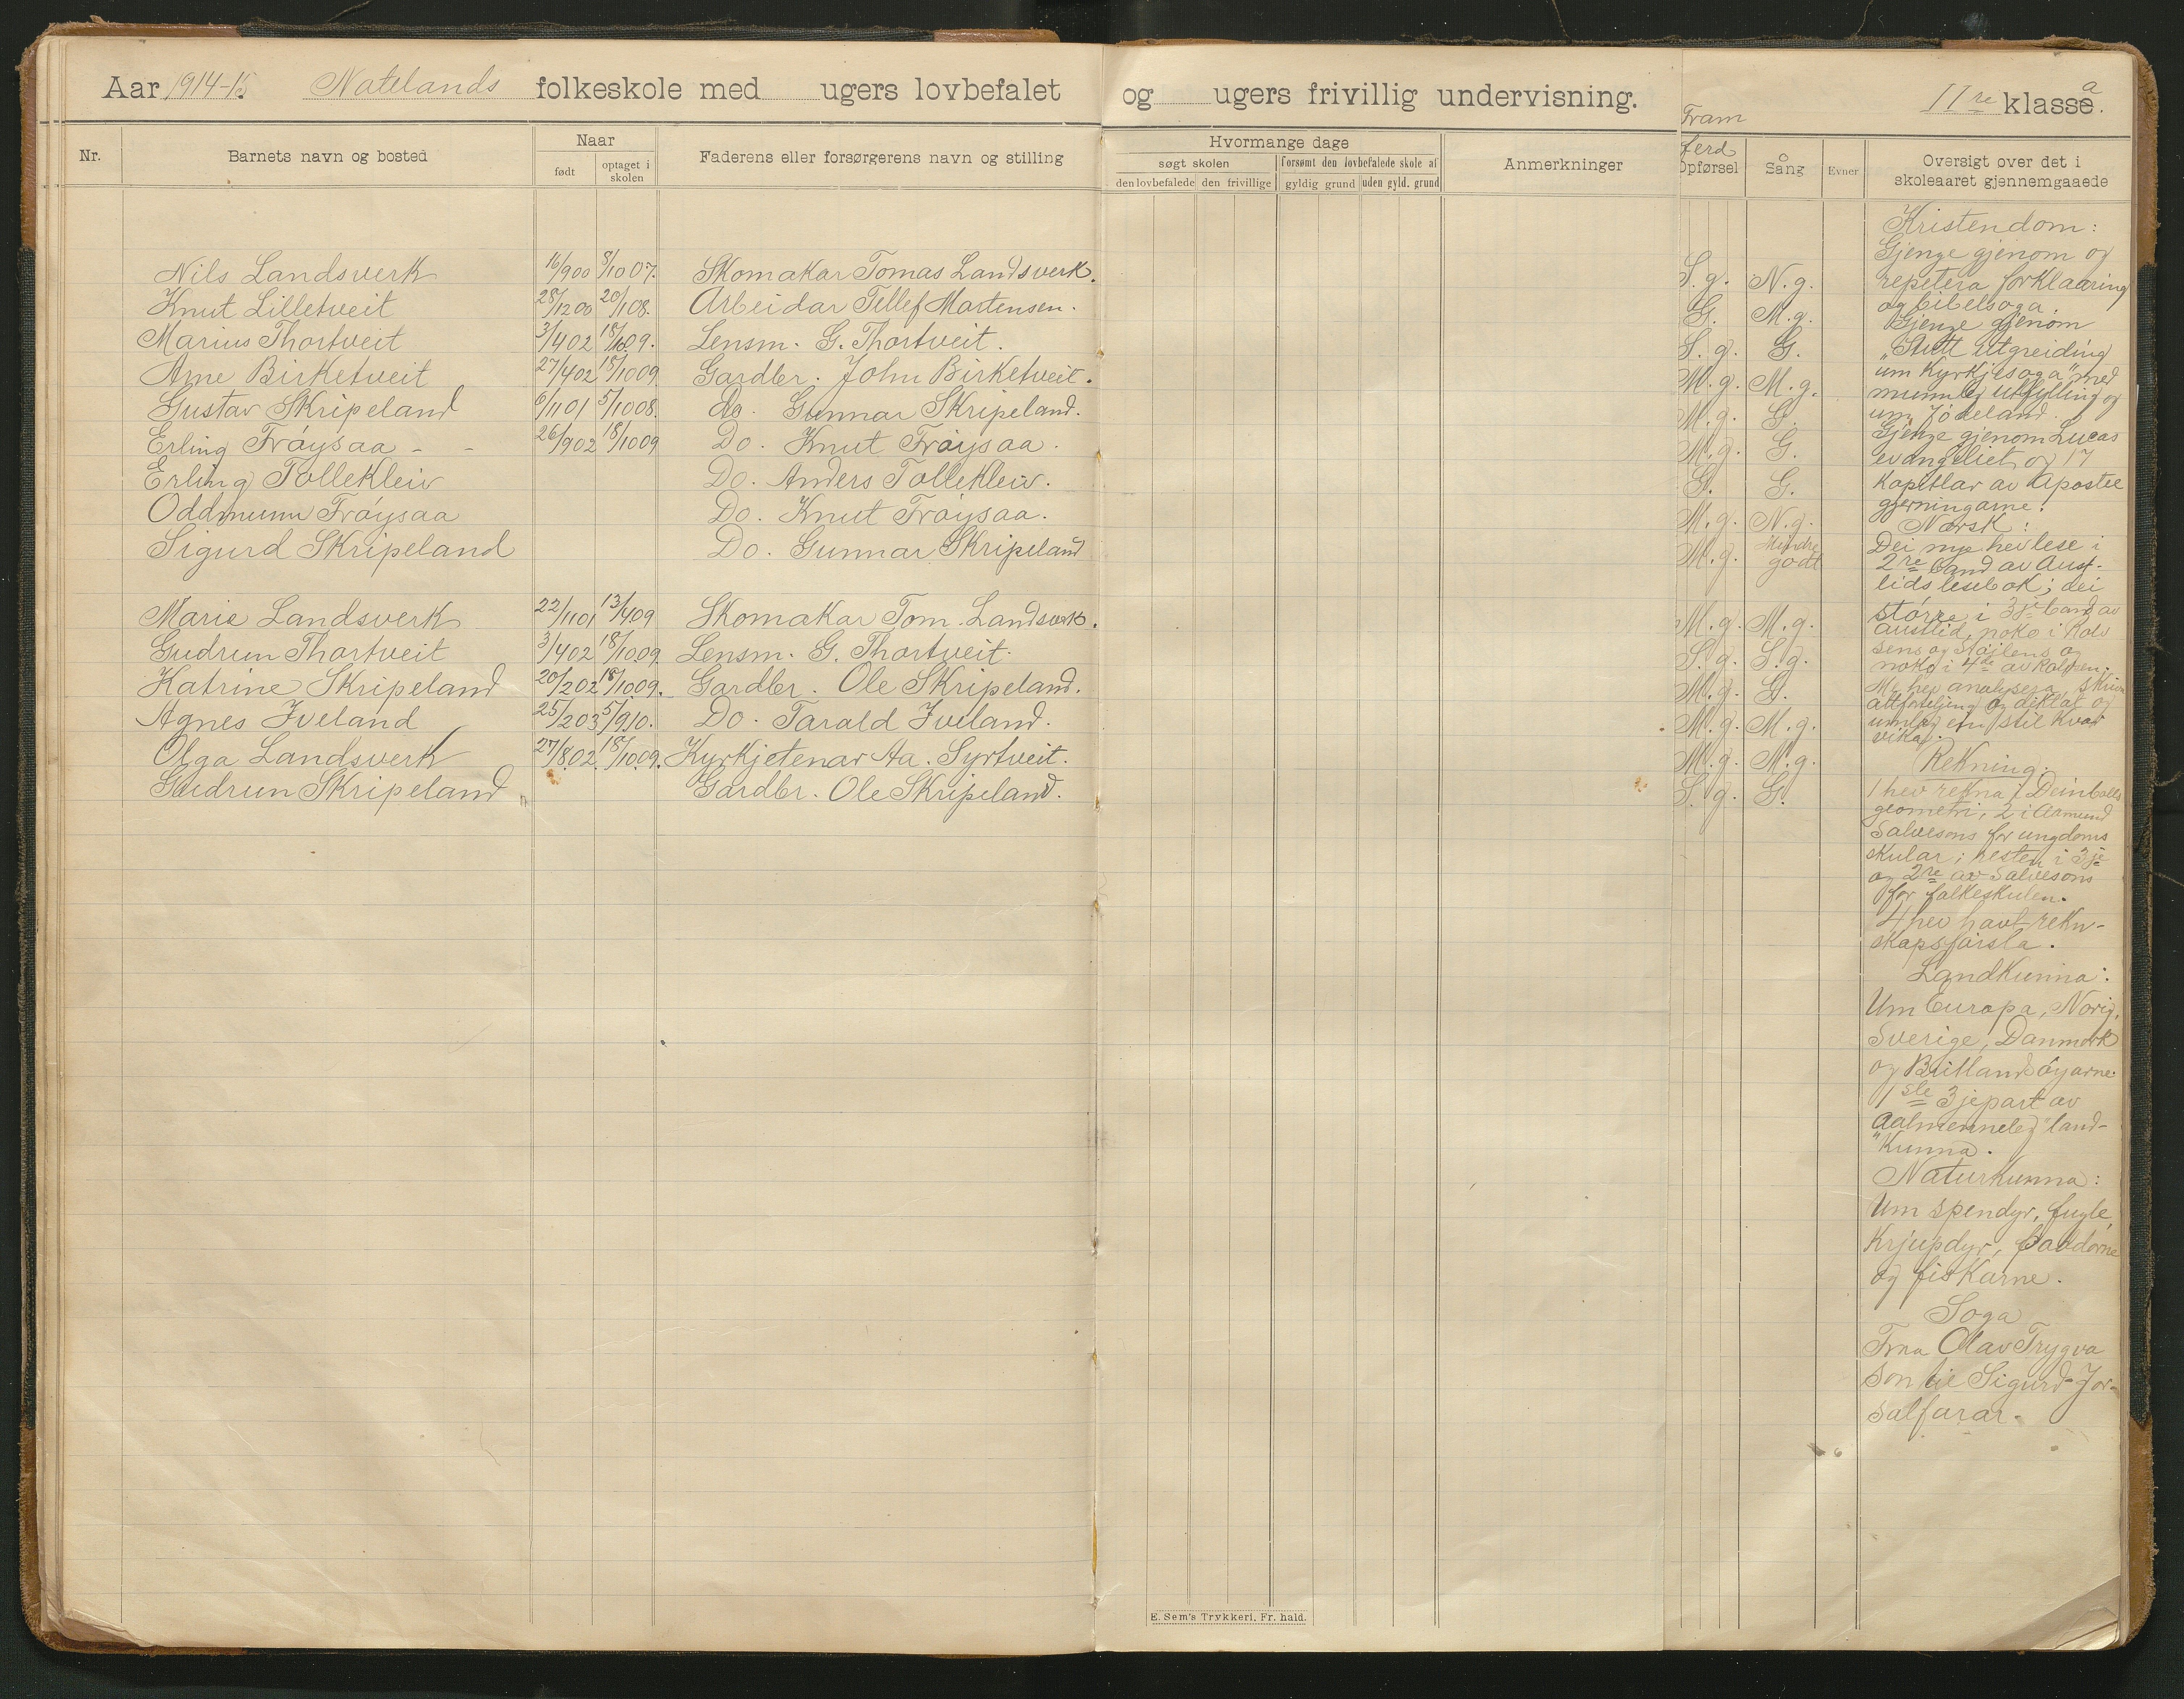 Aar 1914-15. Natelands folkeskole med ugers lovbefalet og ugers frivillig undervisning. II re klasse. a
Nr.
Barnets navn og bosted
Naar
født
optaget i skolen
Faderens eller forsørgerens navn og stilling
Hvormange dage
søgt skolen
forsømt den lovbefalede skole af
den lovbefalede
den frivillige
gyldig grund
uden gyld. grund
Anmerkninger
Framferd
Opførsel
Sang
Evner
Oversigt over det i skoleaaret gjennemgaaede
Nils Landsverk 16/900 8/1007. Skomakar Tomas Landsverk. S.g. N.g.
Knut Lilletveit 28/1200 20/108. Arbeidar Tellef Martensen. G. M.g.
Marius Thortveit 3/402 18/1009. Lensm. G. Thortveit. S.g. G.
Arne Birketveit 27/402 18/1009 Gardbr. John Birketveit. M.g. M.g.
Gustav Skripeland 6/1101 5/1008. do. Gunnar Skripeland. M.g. G.
Erling Frøysaa - - 26/902 18/1009 Do. Knut Frøysaa. M.g. G.
Erling Tollekleiv Do. Anders Tollekleiv. G. G.
Oddmunn Frøysaa Do. Knut Frøysaa. M.g. N.g.
Sigurd Skripeland Do. Gunnar Skripeland M.g. Mindre godt
Marie Landsverk 22/1101 13/409 Skomakar Tom. Landsverk. M.g. M.g.
Gudrun Thortveit 3/402 18/1009. Lensm. G. Thortveit. S.g. S.g.
Katrine Skripeland 20/202 18/1009. Gardbr. Ole Skripeland. M.g. G.
Agnes Iveland 25/203 5/910. Do. Tarald Iveland. M.g. M.g.
Olga Landsverk 27/802. 18/1009. Kyrkjetenar Aa. Syrtveit. M.g. M.g.
Gudrun Skripeland Gardbr. Ole Skripeland. S.g. G.
Kristendom:
Gjenge gjenom og
repetera forklaaring
og bibelsoga.
Gjenge gjenom
"Stutt utgreiding
um kyrkjesoga" med
munnleg utfylling og
um Jødeland.
Gjenge gjenom Lucas
evangeliet og 17
kapitlar av Apostel
gjerningarne.
Norsk:
Dei nye hev lese i
2re band av Aust-
lids lesebok; dei
større i 3je band av
Austlid, noko i Rolv
sens og Støjlens og
noko i 4de av Rolfsen.
Me hev analysera, skriv
attforteljing og diktat og
umlag ein stil kvar
vika.
Rekning.
1 hev rekna i Deinbolls
geometri, 2 i Aamund
Salvesons for ungdoms
skular; resten i 3je
og 2re av Salvesons
for folkeskulen.
4 hev havt rekn-
skapsførsla.
Landkunna:
Um Europa, Norig,
Sverige, Danmork
og Brittandøyarne.
1ste 3jepart av
Aalmenneleg land-
"kunna.
Naturkunna:
Um spendyr, fugle,
krjupdyr, paddorne
og fiskarne.
Soga
Fraa Olav Trygva
son til Sigurd Jor-
salfarar.
E. Sem's Trykkeri, Fr. hald.